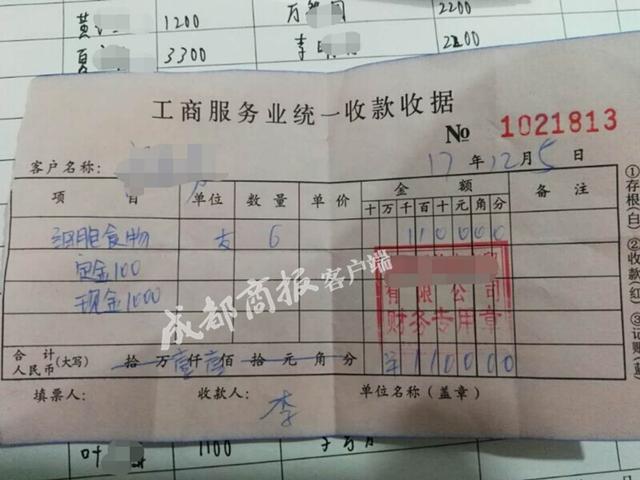 黄 1200 万 2200
夏 3300 李 2200
工商服务业统一收款收据
№ 1021813
客户名称: 17年12月5日
项目 单位 数量 单价 金额 备注
十万千百十元角分
细胞食物 6 110000
定金100
干现金1000
成都商报客户端
有限公司
财务专用章
合计人民币(大写) 拾万壹仟壹佰拾元角分 ¥110000
填票人: 收款人: 李 单位名称(盖章)
①存根(白)②收款(红)③记账
叶 1100